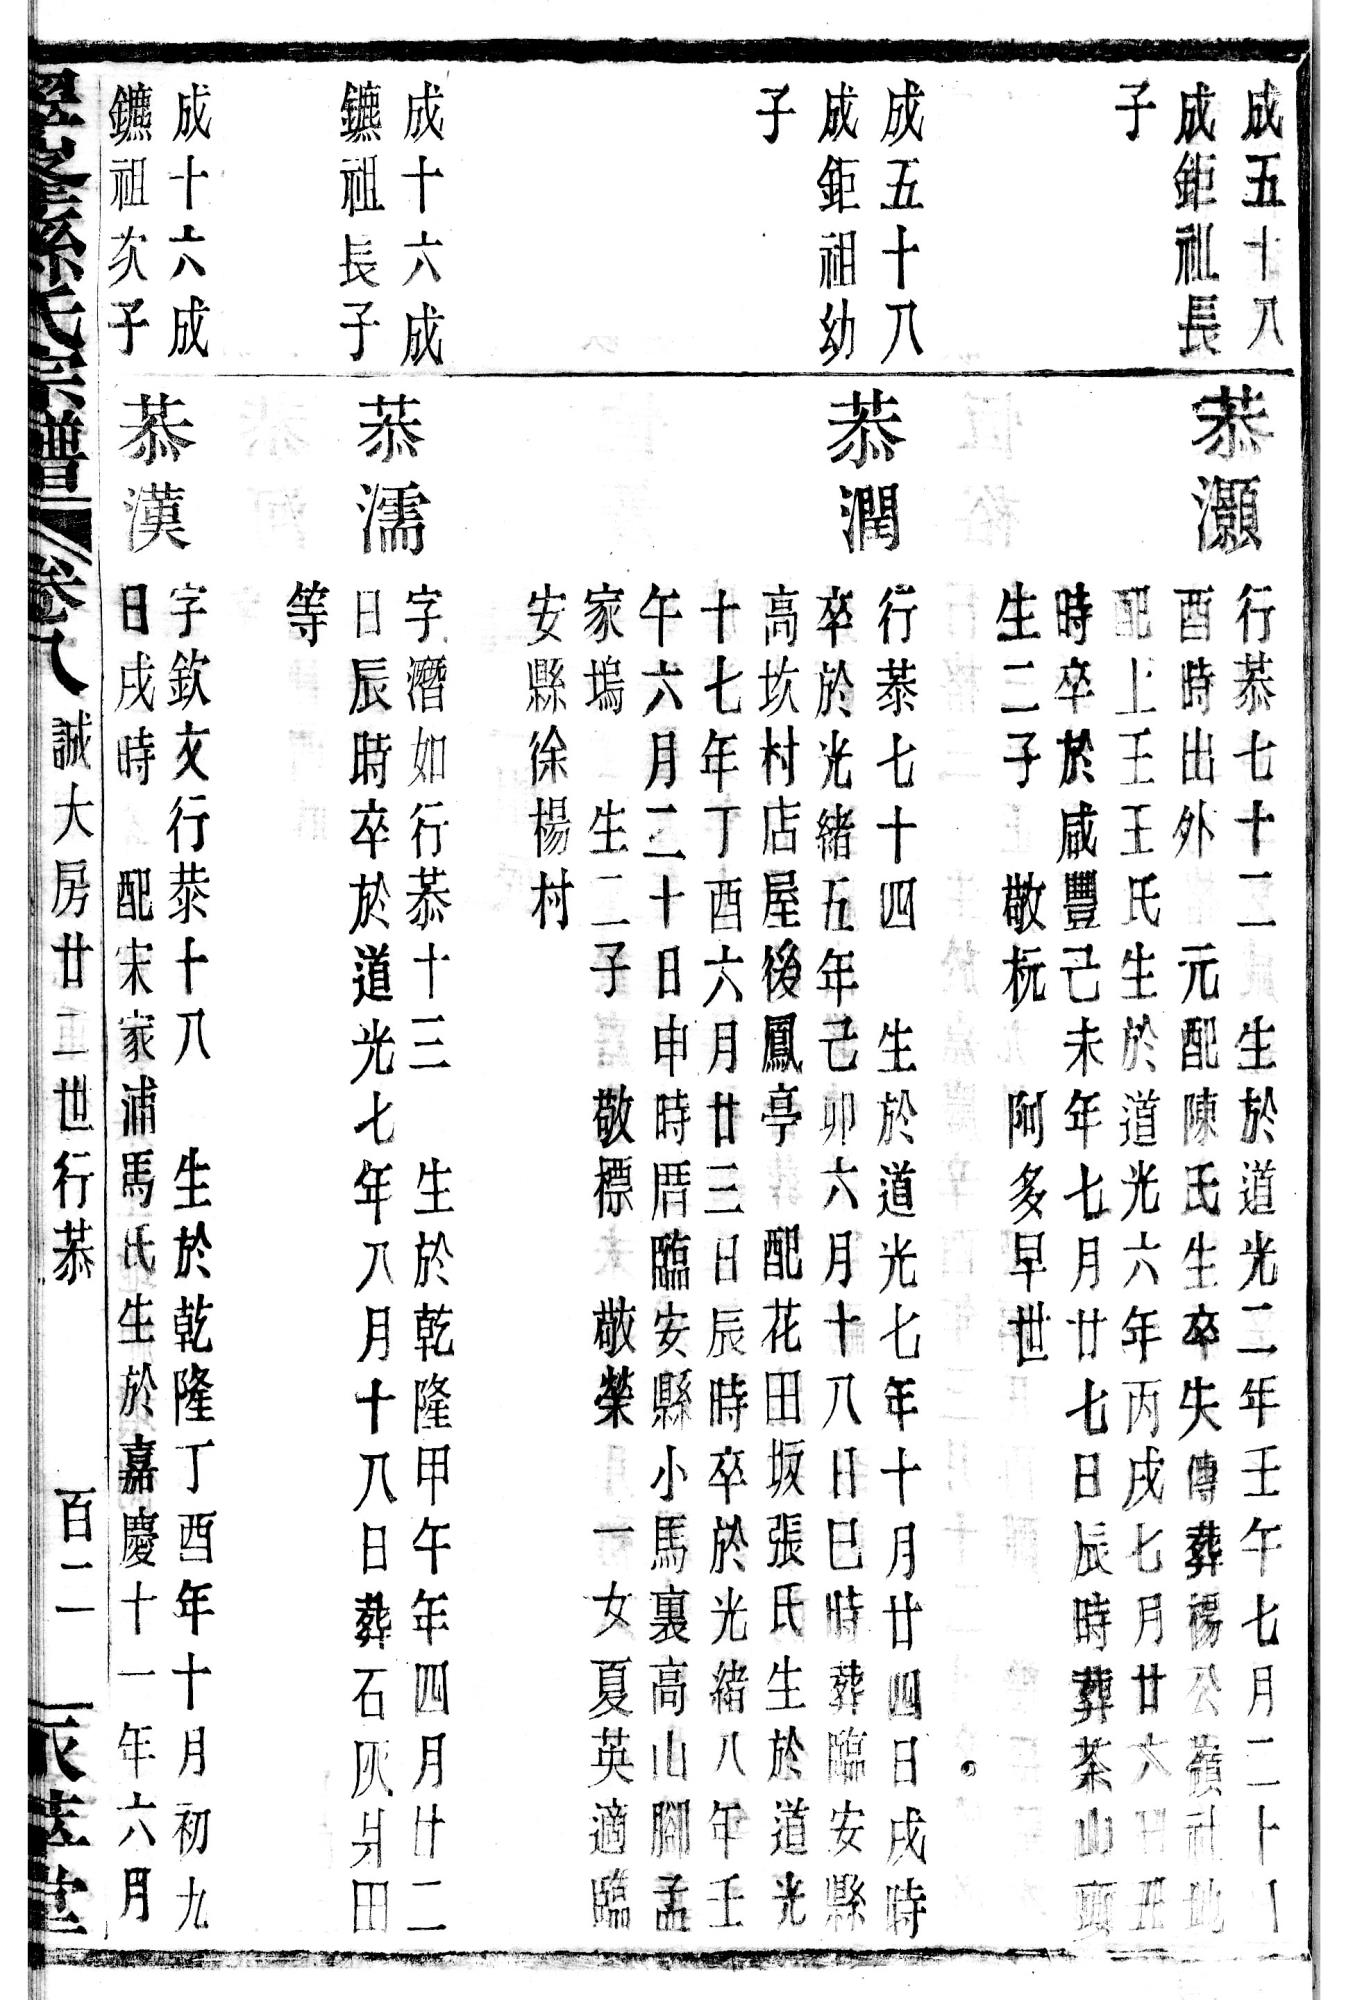 成五十八
成鉅祖長
子
恭灝
行恭七十二 生於道光二年壬午七月二十一
酉時出外 元配陳氏生卒失傳葬楊公嶺社
配上王王氏生於道光六年丙戌七月廿六日丑
時卒於咸豐己未年七月廿七日辰時葬茶山頭
生二子 敬杬 阿多早世
成五十八
成鉅祖幼
子
恭潤
行恭七十四 生於道光七年十月廿四日戌時
卒於光緒五年己卯六月十八日巳時葬臨安縣
高坎村店屋後鳳亭 配花田坂張氏生於道光
十七年丁酉六月廿三日辰時卒於光緒八年壬
午六月二十日申時厝臨安縣小馬裏高山腳孟
家塢 生二子 敬標 敬榮 一女夏英適臨
安縣徐楊村
成十六成
鑣祖長子
恭濡
字潛如行恭十三 生於乾隆甲午年四月廿二
日辰時卒於道光七年八月十八日葬石灰爿田
等
成十六成
鑣祖次子
恭漢
字欽文行恭十八 生於乾隆丁酉年十月初九
日戌時 配宋家浦馬氏生於嘉慶十一年六月
孫氏宗譜 卷八 誠大房廿二世行恭 百二 堂